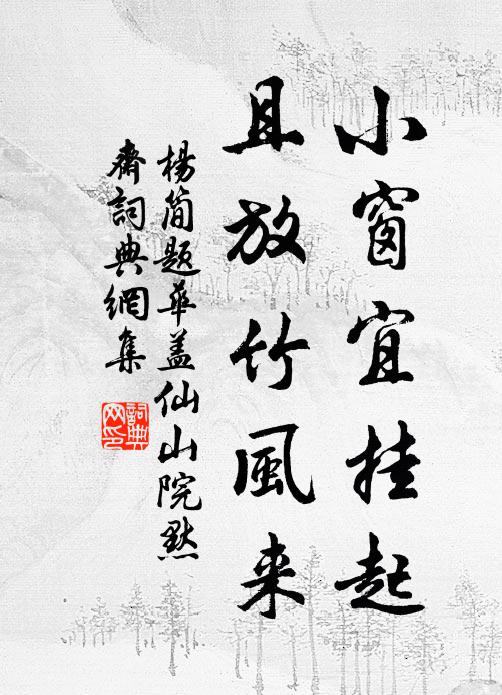 小窗宜挂起
且放竹風来
楊简题華盖仙山院默
齋詞典網集
詞典
网印